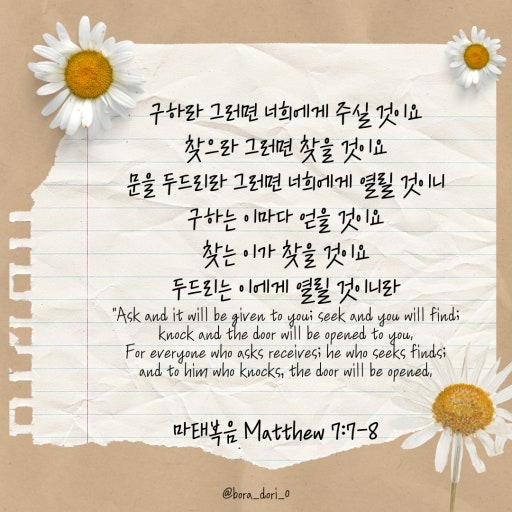 구하라 그러면 너희에게 주실 것이요
찾으라 그러면 찾을 것이요
문을 두드리라 그러면 너희에게 열릴 것이니
구하는 이마다 얻을 것이요
찾는 이가 찾을 것이요
두드리는 이에게 열릴 것이니라
"Ask and it will be given to you; seek and you will find;
knock and the door will be opened to you.
For everyone who asks receives; he who seeks finds;
and to him who knocks, the door will be opened.
마태복음 Matthew 7:7-8
@bora_dori_o